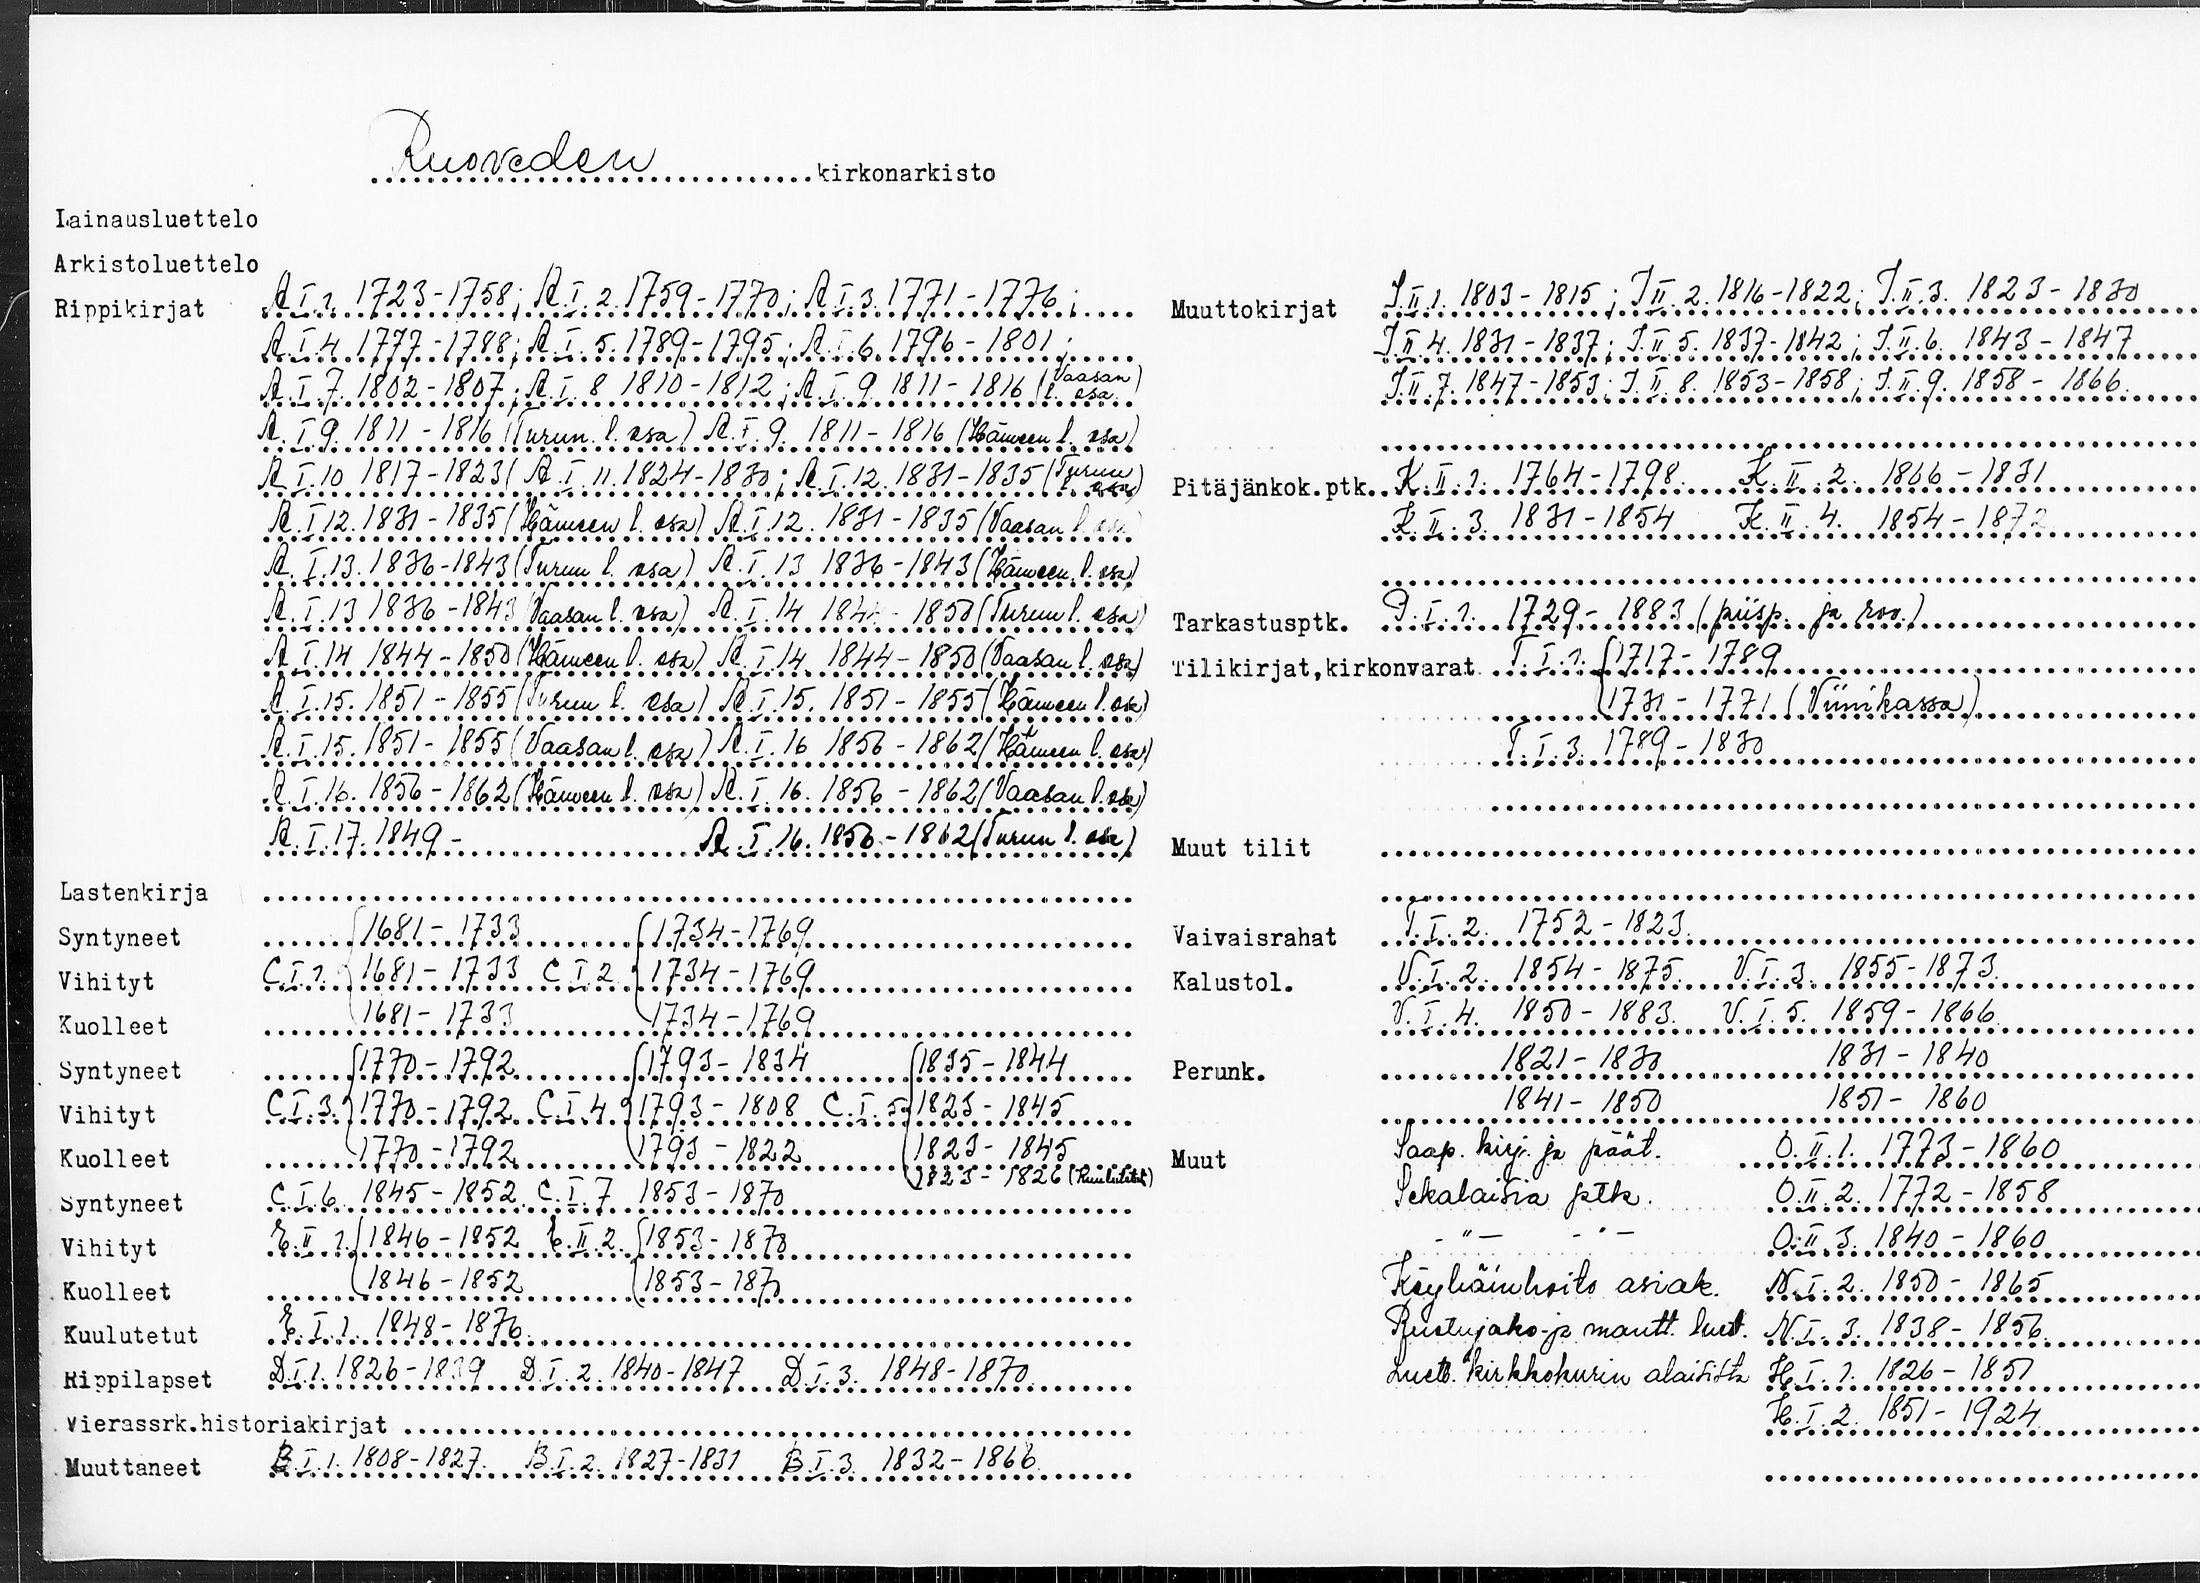 Ruoveden kirkonarkisto
Lainausluettelo
Arkistoluettelo
Rippikirjat A.I.1. 1723-1758; A.I.2. 1759-1770; A.I.3. 1771-1776;
A.I.4. 1777-1788; A.I.5. 1789-1795; A.I.6. 1796-1801;
A.I.7. 1802-1807; A.I.8 1810-1812; A.I.9. 1811-1816 (Vaasan l. osa)
A.I.9. 1811-1816 (Turun l. osa) A.I.9. 1811-1816 (Hämeen l. osa)
A.I.10 1817-1823( A.I.11. 1824-1830; A.I.12. 1831-1835 (Turun l. osa)
A.I.12. 1831-1835 (Hämeen l. osa) A.I.12. 1831-1835 (Vaasan l. osa
A.I.13. 1836-1843 (Turun l. osa) A.I.13 1836-1843 (Hämeen l. osa)
A.I.13 1836-1843 (Vaasan l. osa) A.I.14 1844-1850 (Turun l. osa)
A.I.14 1844-1850 (Hämeen l. osa) A.I.14 1844-1850 (Vaasan l. osa)
A.I.15. 1851-1855 (Turun l. osa) A.I.15. 1851-1855 (Hämeen l. osa)
A.I.15. 1851-1855 (Vaasan l. osa) A.I.16 1856-1862 (Hämeen l. osa)
A.I.16. 1856-1862 (Hämeen l. osa) A.I.16. 1856-1862 (Vaasan l. osa)
A.I.17. 1849- A.I.16. 1856-1862 (Turun l. osa)
Lastenkirja
Syntyneet 1681-1733 1734-1769
Vihityt C.I.1. 1681-1733 C.I.2. 1734-1769
Kuolleet 1681-1733 1734-1769
Syntyneet 1770-1792 1793-1834 1835-1844
Vihityt C.I.3. 1770-1792 C.I.4. 1793-1808 C.I.5. 1823-1845
Kuolleet 1770-1792 1793-1822 1823-1845
1823-1826 (Kuulutetut)
Syntyneet C.I.6. 1845-1852 C.I.7 1853-1870
Vihityt E.II.1. 1846-1852 E.II.2. 1853-1870
Kuolleet 1846-1852 1853-187
Kuulutetut E.I.1. 1848-1876
Rippilapset D.I.1. 1826-1839 D.I.2. 1840-1847 D.I.3. 1848-1870
Vierassrk.historiakirjat
Muuttaneet B.I.1. 1808-1827. B.I.2. 1827-1831 B.I.3. 1832-1866
Muuttokirjat J.II.1. 1803-1815; J.II.2. 1816-1822; J.II.3. 1823-1830
J.II.4. 1831-1837; J.II.5. 1837-1842; J.II.6. 1843-1847
J.II.7. 1847-1853; J.II.8. 1853-1858; J.II.9. 1858-1866
Pitäjänkok.ptk. K.II.1. 1764-1798. K.II.2. 1866-1831
K.II.3. 1831-1854 K.II.4. 1854-1872
Tarkastusptk. P.I.1. 1729-1883 (piisp. ja rov.)
Tilikirjat,kirkonvarat T.I.1. 1717-1789
1731-1771 (Viinikassa)
T.I.3. 1789-1830
Muut tilit
Vaivaisrahat T.I.2. 1752-1823.
Kalustol. V.I.2. 1854-1875. V.I.3. 1855-1873.
V.I.4. 1850-1883. V.I.5. 1859-1866.
Perunk. 1821-1830 1831-1840
1841-1850 1851-1860
Muut Saap. kirj. ja päät. O.II.1. 1773-1860
Sekalaisia ptk. O.II.2. 1772-1858
-"- -"- O.II.3. 1840-1860
Köyhäinhoito asiak. N.I.2. 1850-1865
Ruotujako-ja mantt. luet. N.I.3. 1838-1856
Luett. kirkkokurin alaisista H.I.1. 1826-1851
H.I.2. 1851-1924